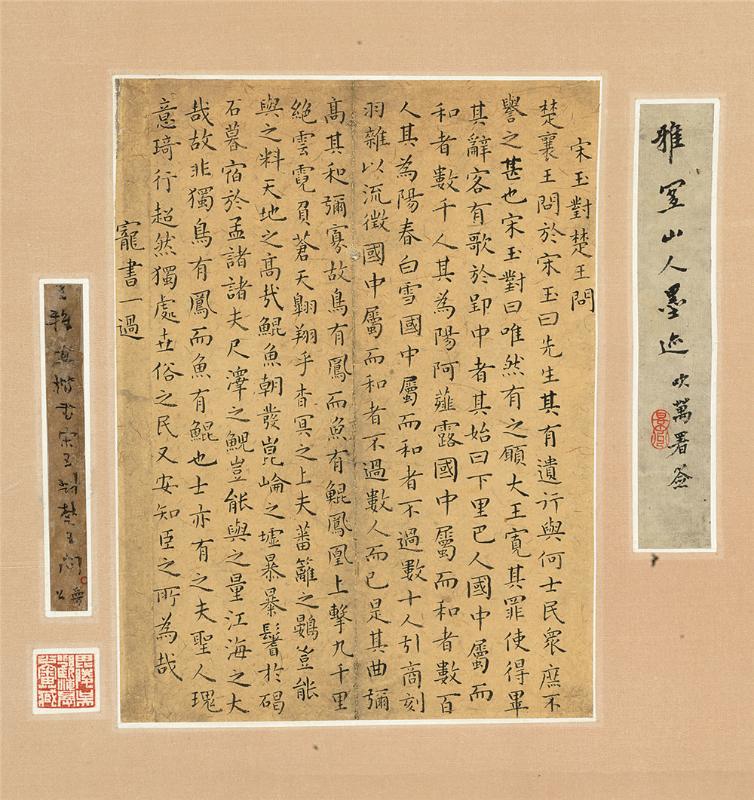 雅宜山人墨迹 吹萬署簽
宋玉對楚王問
楚襄王問於宋玉曰先生其有遺行與何士民眾庶不
譽之甚也宋玉對曰唯然有之願大王寬其罪使得畢
其辭客有歌於郢中者其始曰下里巴人國中屬而
和者數千人其為陽阿薤露國中屬而和者數百
人其為陽春白雪國中屬而和者不過數十人引商刻
羽雜以流徵國中屬而和者不過數人而已是其曲彌
高其和彌寡故鳥有鳳而魚有鯤鳳凰上擊九千里
絕雲霓負蒼天翺翔乎杳冥之上夫蕃籬之鷃豈能
與之料天地之高哉鯤魚朝發崑崙之墟暴暴鬐於碣
石暮宿於孟諸諸夫尺澤之鯢豈能與之量江海之大
哉故非獨鳥有鳳而魚有鯤也士亦有之夫聖人瑰
意琦行超然獨處世俗之民又安知臣之所為哉
寵書一過
王雅宜楷書宋玉對楚王問